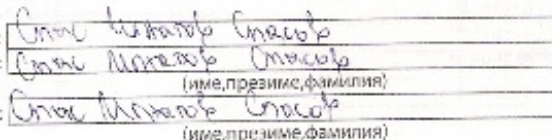 Спас Игнатов Спасов
Спас Игнатов Спасов
(име,презиме,фамилия)
Спас Игнатов Спасов
(име,презиме,фамилия)